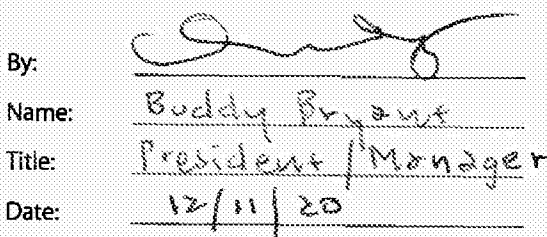 By:
Name: Buddy Bryant
Title: President / Manager
Date: 12/11/20